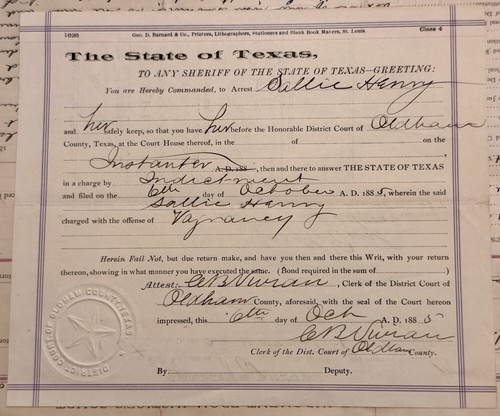 10293 Geo. D. Barnard & Co., Printers, Lithographers, Stationers and Blank Book Makers, St. Louis. Class 4
The State of Texas,
TO ANY SHERIFF OF THE STATE OF TEXAS—GREETING:
You are Hereby Commanded, to Arrest Sallie Henry
and her safely keep, so that you have her before the Honorable District Court of Oldham
County, Texas, at the Court House thereof, in the of on the
Instanter A. D. 188 , then and there to answer THE STATE OF TEXAS
in a charge by Indictment
and filed on the 6th day of October A. D. 1885, wherein the said
Sallie Henry
charged with the offense of Vagrancy
Herein Fail Not, but due return make, and have you then and there this Writ, with your return
thereon, showing in what manner you have executed the same. (Bond required in the sum of )
Attest: C B Vivian, Clerk of the District Court of
Oldham County, aforesaid, with the seal of the Court hereon
impressed, this 6th day of Oct A. D. 1885
C B Vivian
Clerk of the Dist. Court of Oldham County.
By Deputy.
DISTRICT COURT OF OLDHAM COUNTY, TEXAS